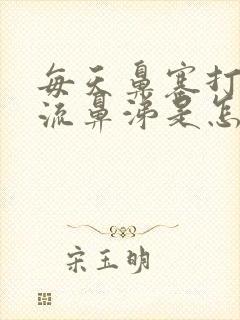 每天鼻塞打
流鼻涕是怎
宋玉明